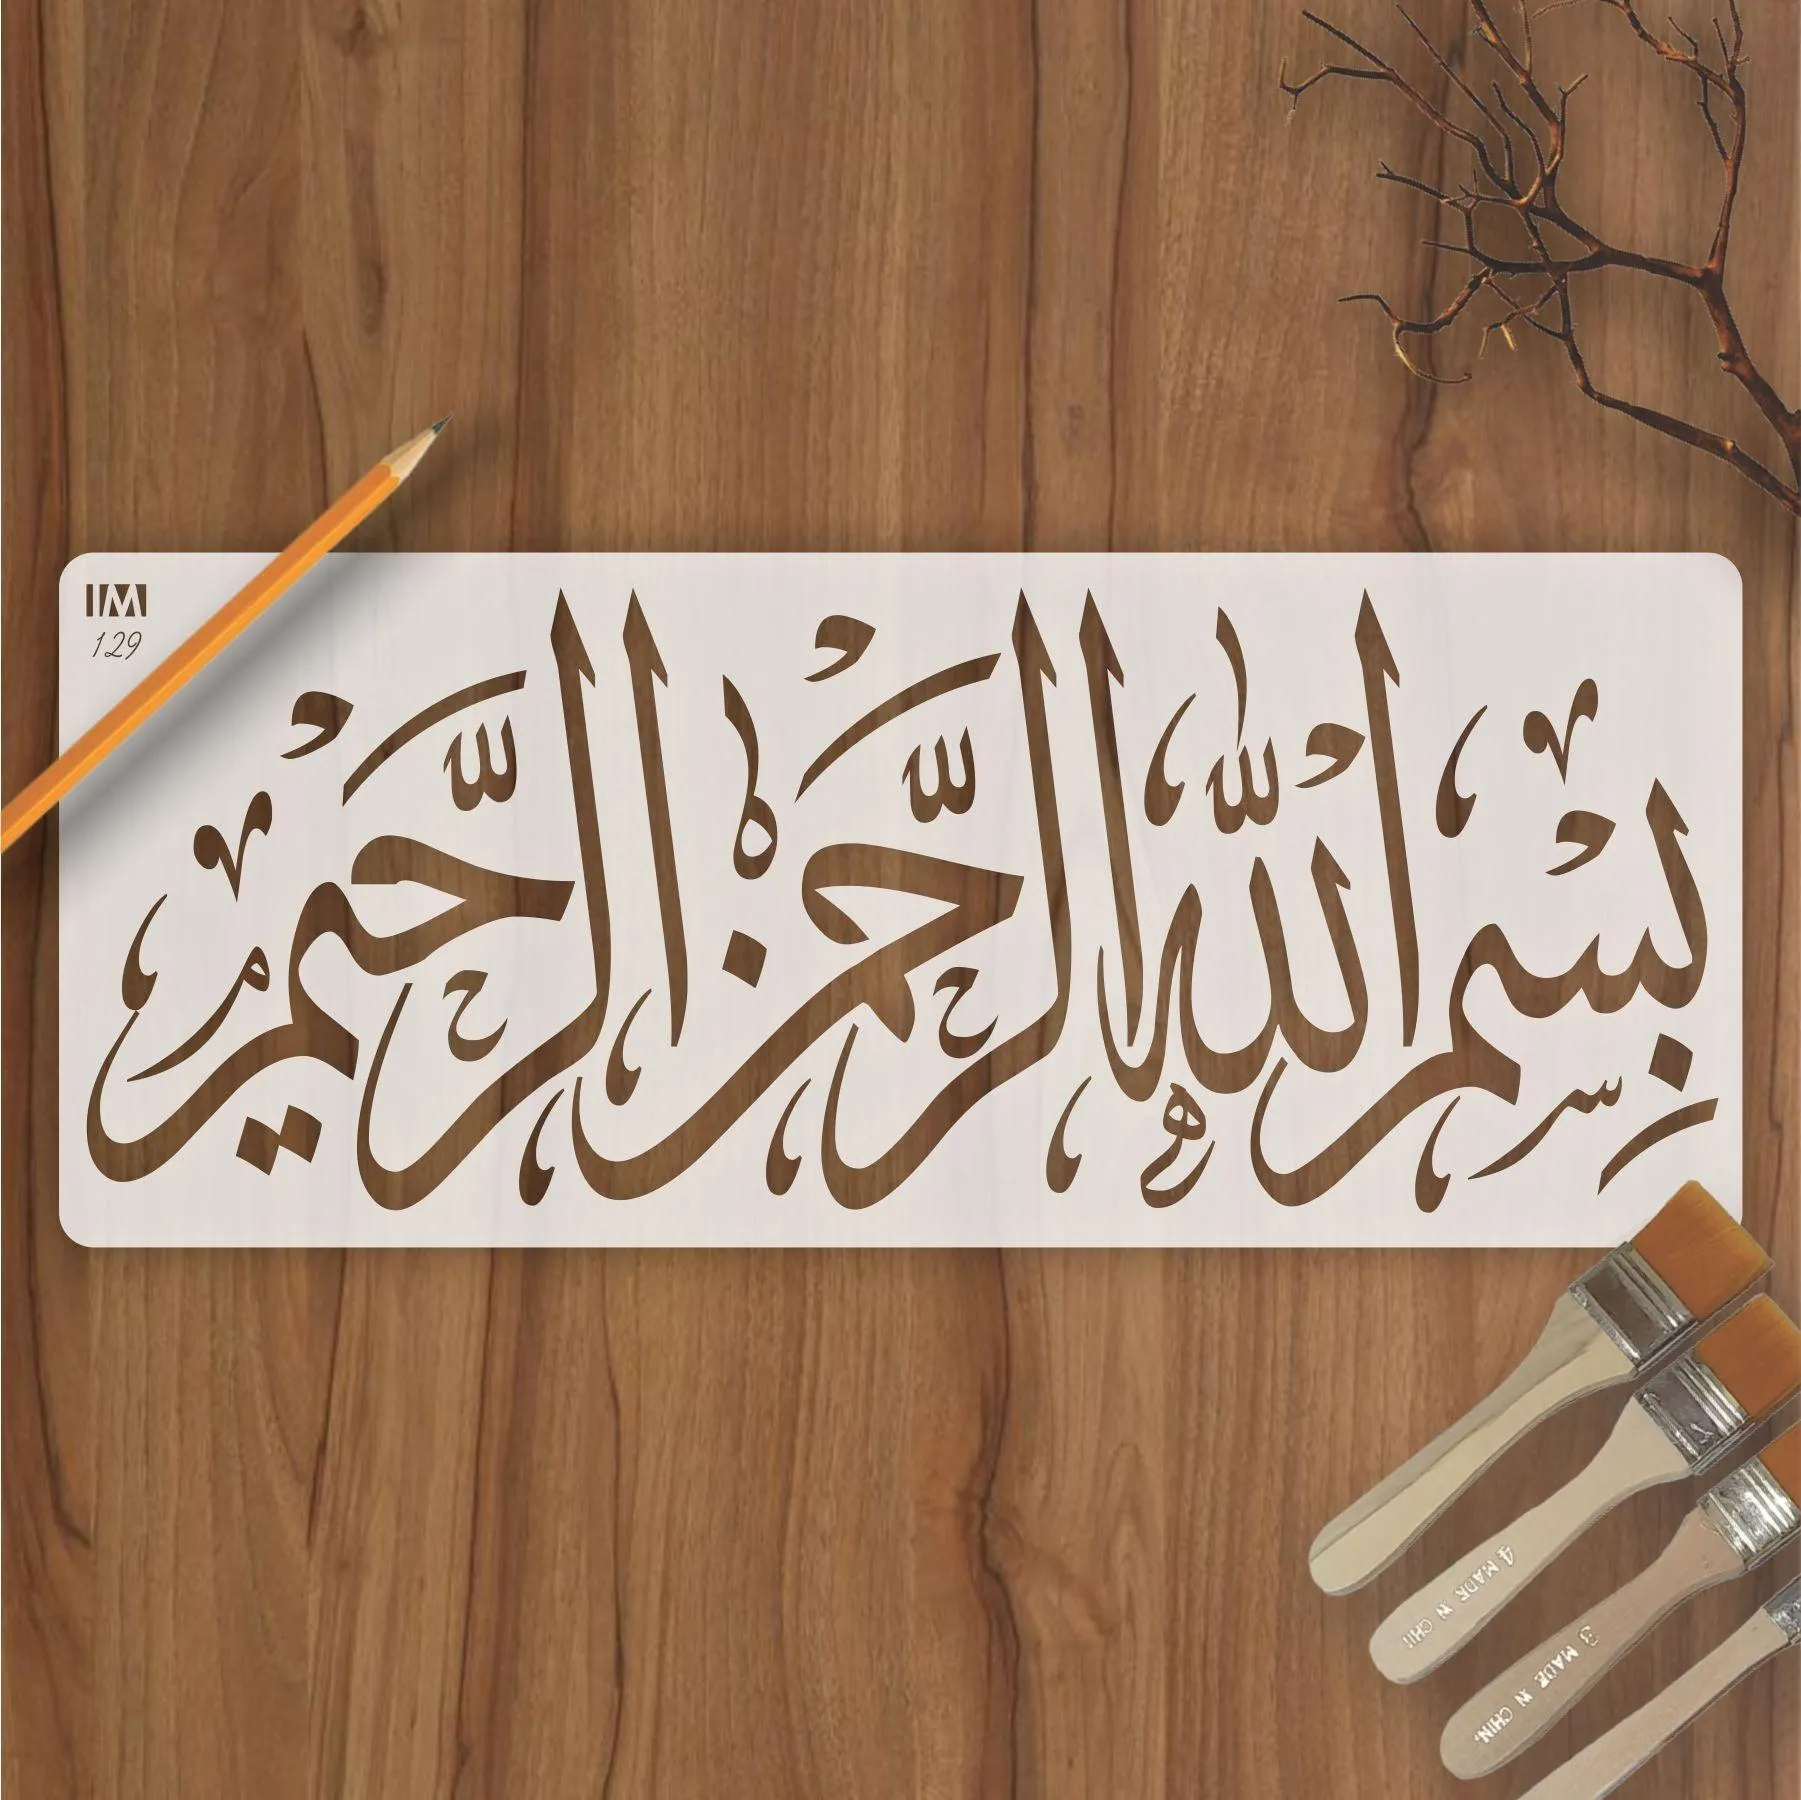 IIM
129
بسم الله الرحمن الرحيم
4 MADE IN CHI
3 MADE IN CHIN